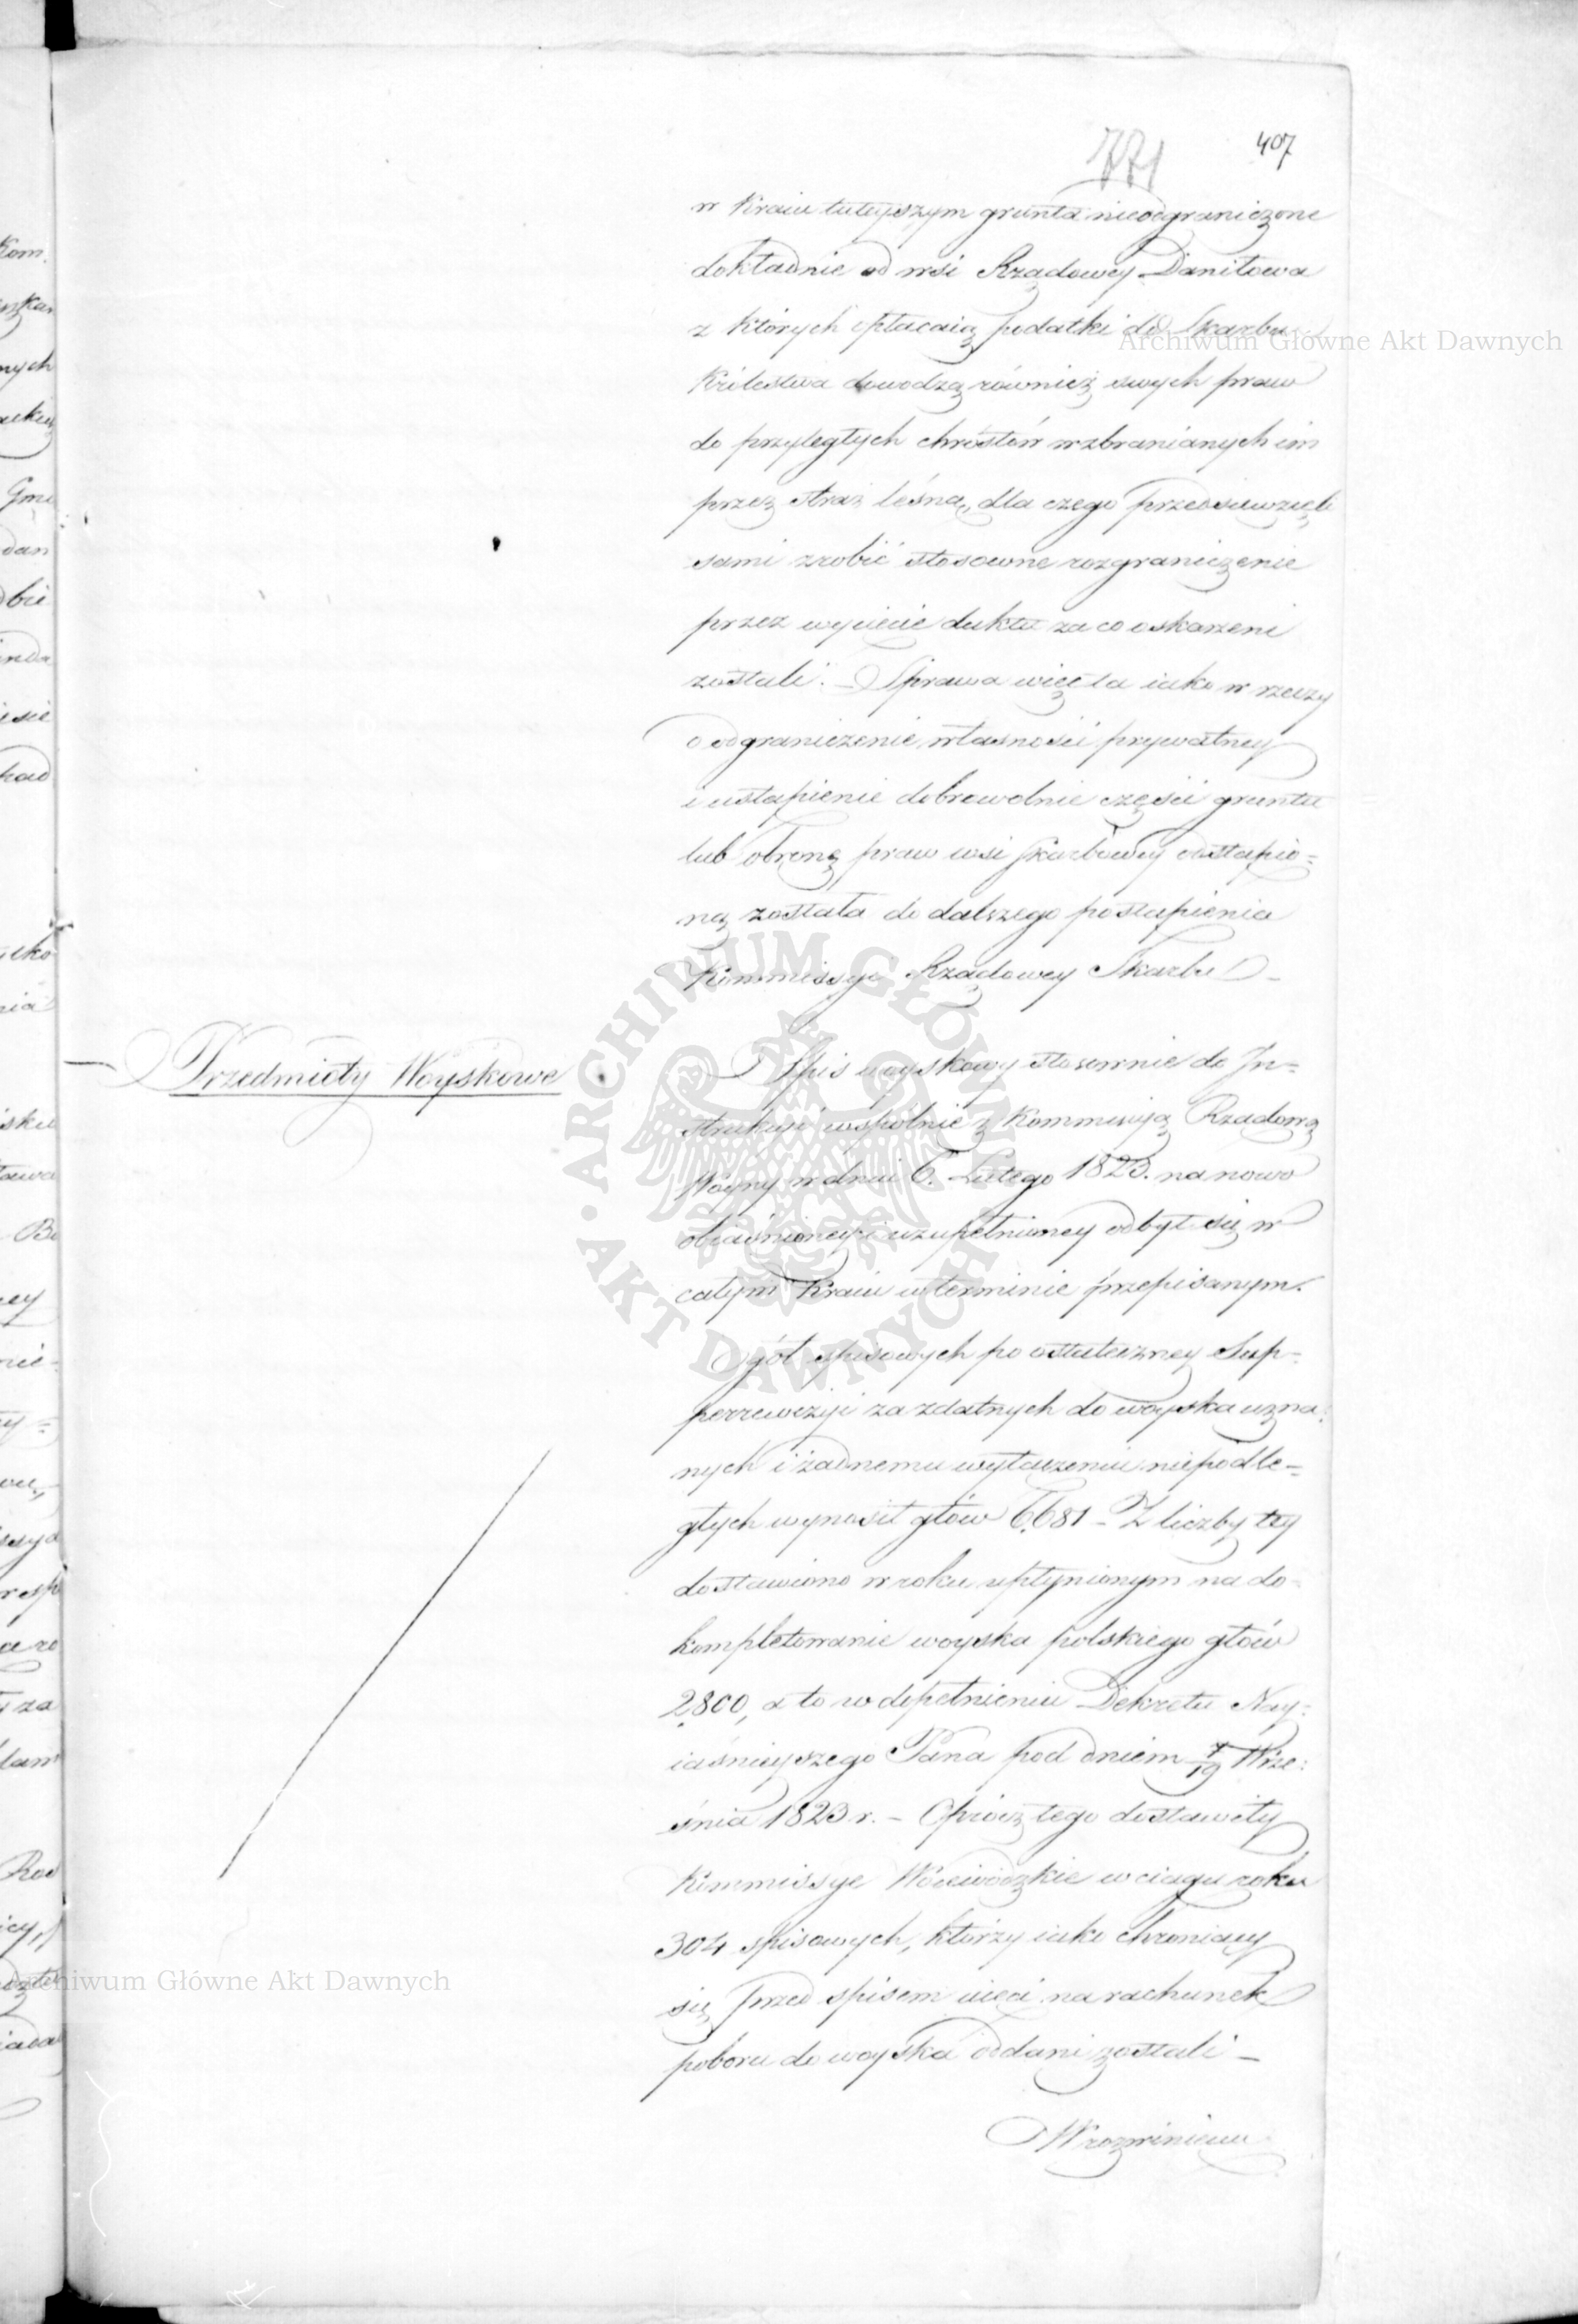 771
407
w Kraiu tuteyszym grunta nieodgraniczone
dokładnie od wsi Rządowey Daniłowa
z których opłacaią podatki do Skarbu
Królestwa dowodzą również swych praw
do przyległych chróstów wzbranianych im
przez straż leśną, dla czego przedsięwzięli
sami zrobić stosowne rozgraniczenie
przez wycięcie duktu za co oskarzeni
zostali. – Sprawa więc ta iako w rzeczy
o odgraniczenie własności prywatney
i ustąpienie dobrowolnie części gruntu
lub obronę praw wsi Skarbowey odstąpio=
ną została do dalszego postąpienia
Kommissyi Rządowey Skarbu –
Przedmioty Woyskowe
Spis woyskowy stosownie do In=
strukcyi wspólnie z Kommissyą Rządową
Woyny w dniu 6. Lutego 1823. na nowo
obiaśnioney i uzupełnioney odbył się w
całym Kraiu w terminie przepisanym.
Ogół spisowych po ostateczney Sup=
perrewizyi za zdatnych do woyska uzna=
nych i żadnemu wyłączeniu niepodle=
głych wynosił głów 6,681 – Z liczby tey
dostawiono w roku upłynionym na do=
kompletowanie woyska polskiego głów
2,800, a to w dopełnieniu Dekretu Nay=
iaśnieyszego Pana pod dniem 7/19 Wrze=
śnia 1823 r. – Oprócz tego dostawiły
Kommissye Woiewódzkie w ciągu roku
304 spisowych, którzy iako chroniący
się przed spisem uięci na rachunek
poboru do woyska oddani zostali –
W rozwinieniu
Archiwum Główne Akt Dawnych
ARCHIWUM GŁÓWNE • AKT DAWNYCH
Archiwum Główne Akt Dawnych